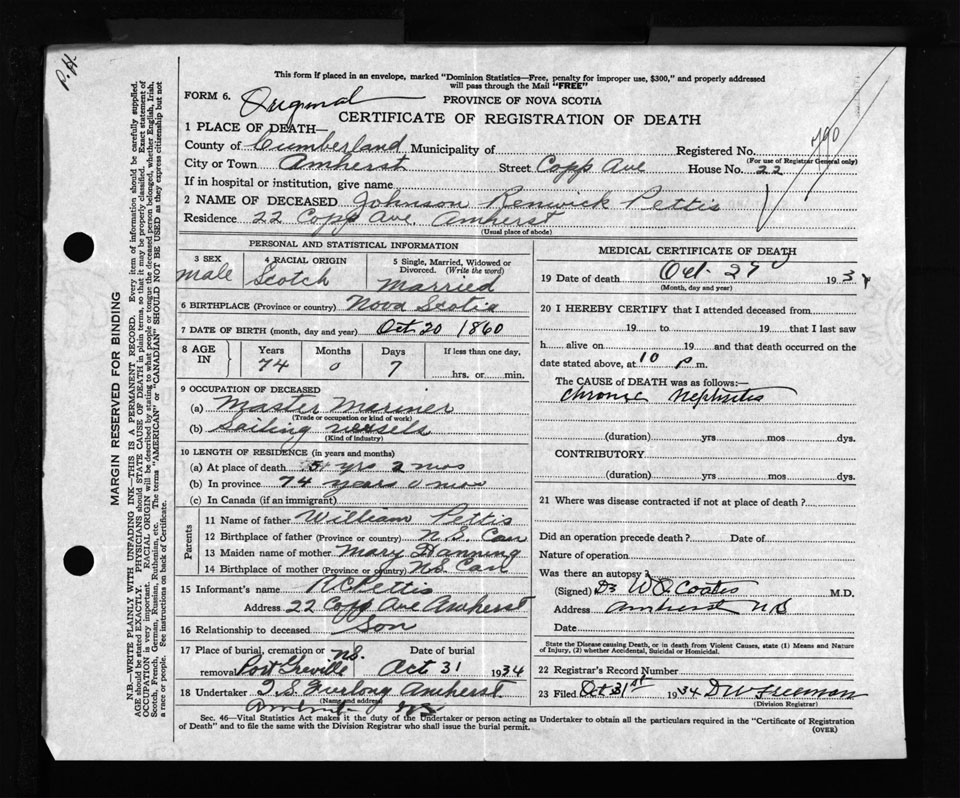 P.H.
This form if placed in an envelope, marked "Dominion Statistics—Free, penalty for improper use, $300," and properly addressed
will pass through the Mail "FREE"
FORM 6. Original
PROVINCE OF NOVA SCOTIA
CERTIFICATE OF REGISTRATION OF DEATH
1 PLACE OF DEATH—
County of Cumberland Municipality of Registered No. 790
(For use of Registrar General only)
City or Town Amherst Street Copp Ave House No. 22
If in hospital or institution, give name
2 NAME OF DECEASED Johnson Renwick Pettis
Residence 22 Copp Ave. Amherst
(Usual place of abode)
PERSONAL AND STATISTICAL INFORMATION
3 SEX 4 RACIAL ORIGIN 5 Single, Married, Widowed or
Divorced. (Write the word)
male Scotch Married
6 BIRTHPLACE (Province or country) Nova Scotia
7 DATE OF BIRTH (month, day and year) Oct. 20 1860
8 AGE IN Years Months Days If less than one day,
74 0 7 hrs. or min.
9 OCCUPATION OF DECEASED
(a) Master Mariner
(Trade or occupation or kind of work)
(b) Sailing vessels
(Kind of industry)
10 LENGTH OF RESIDENCE (in years and months)
(a) At place of death 5 yrs 2 mos
(b) In province 74 years 0 mos
(c) In Canada (if an immigrant)
Parents
11 Name of father William Pettis
12 Birthplace of father (Province or country) N.S. Can
13 Maiden name of mother Mary
14 Birthplace of mother (Province or country) N.S. Can
15 Informant's name R C Pettis
Address 22 Copp Ave Amherst
16 Relationship to deceased Son
17 Place of burial, cremation or removal Port Greville N.S. Date of burial Oct 31 1934
18 Undertaker Furlong Amherst
(Name and address)
Amherst
MEDICAL CERTIFICATE OF DEATH
19 Date of death Oct. 27 193
(Month, day and year)
20 I HEREBY CERTIFY that I attended deceased from
19 to 19 that I last saw
h alive on 19 and that death occurred on the
date stated above, at 10 p m.
The CAUSE OF DEATH was as follows:—
Chronic Nephritis
(duration) yrs mos dys.
CONTRIBUTORY
(duration) yrs mos dys.
21 Where was disease contracted if not at place of death?
Did an operation precede death? Date of
Nature of operation
Was there an autopsy?
(Signed) Dr Coates M.D.
Address Amherst NS
Date
State the Disease causing Death, or in death from Violent Causes, state (1) Means and Nature
of Injury, (2) whether Accidental, Suicidal or Homicidal.
22 Registrar's Record Number
23 Filed Oct 31st 1934 D W Freeman
(Division Registrar)
Sec. 46—Vital Statistics Act makes it the duty of the Undertaker or person acting as Undertaker to obtain all the particulars required in the "Certificate of Registration
of Death" and to file the same with the Division Registrar who shall issue the burial permit.
(OVER)
MARGIN RESERVED FOR BINDING
N.B.—WRITE PLAINLY WITH UNFADING INK—THIS IS A PERMANENT RECORD. Every item of information should be carefully supplied.
AGE should be stated EXACTLY. PHYSICIANS should STATE CAUSE OF DEATH in plain terms, so that it may be properly classified. Exact statement of
OCCUPATION is very important. RACIAL ORIGIN will be described by stating to what people or tongue the deceased person belonged, whether English, Irish,
Scotch, French, German, Russian, Ruthenian, etc. The terms "AMERICAN" or "CANADIAN" SHOULD NOT BE USED as they express citizenship but not
a race or people. See instructions on back of Certificate.